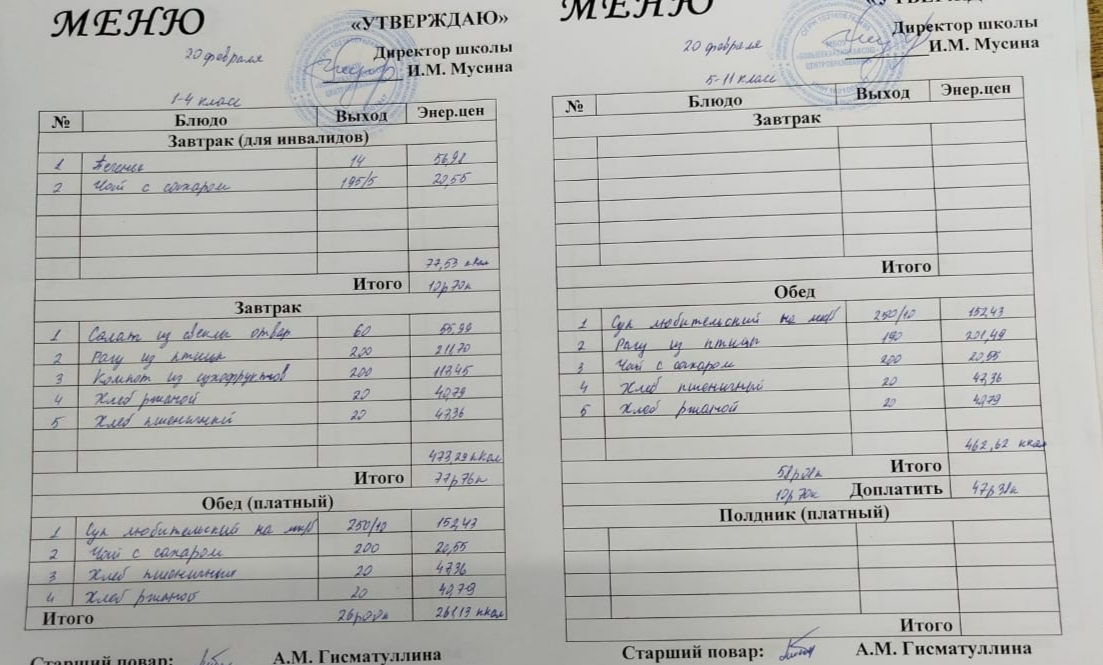 МЕНЮ
«УТВЕРЖДАЮ»
Директор школы
20 февраля
И.М. Мусина
1-4 класс
№ Блюдо Выход Энер.цен
Завтрак (для инвалидов)
1 Печенье 14 56,98
2 Чай с сахаром 195/5 20,55
77,53 ккал
Итого 10р70к
Завтрак
1 Салат из свеклы отвар 60 55,99
2 Рагу из птицы 200 211,70
3 Компот из сухофруктов 200 113,45
4 Хлеб ржаной 20 40,79
5 Хлеб пшеничный 20 47,36
473,29 ккал
Итого 77р76к
Обед (платный)
1 Суп любительский на м/к/б 250/10 152,43
2 Чай с сахаром 200 20,55
3 Хлеб пшеничный 20 47,36
4 Хлеб ржаной 20 40,79
Итого 26р00к 261,13 ккал
Старший повар: А.М. Гисматуллина
МЕНЮ
Директор школы
20 февраля
И.М. Мусина
5-11 класс
№ Блюдо Выход Энер.цен
Завтрак
Итого
Обед
1 Суп любительский на м/к/б 250/10 152,43
2 Рагу из птицы 190 201,49
3 Чай с сахаром 200 20,55
4 Хлеб пшеничный 20 47,36
5 Хлеб ржаной 20 40,79
462,62 ккал
58р08к Итого
10р70к Доплатить 47р38к
Полдник (платный)
Итого
Старший повар: А.М. Гисматуллина